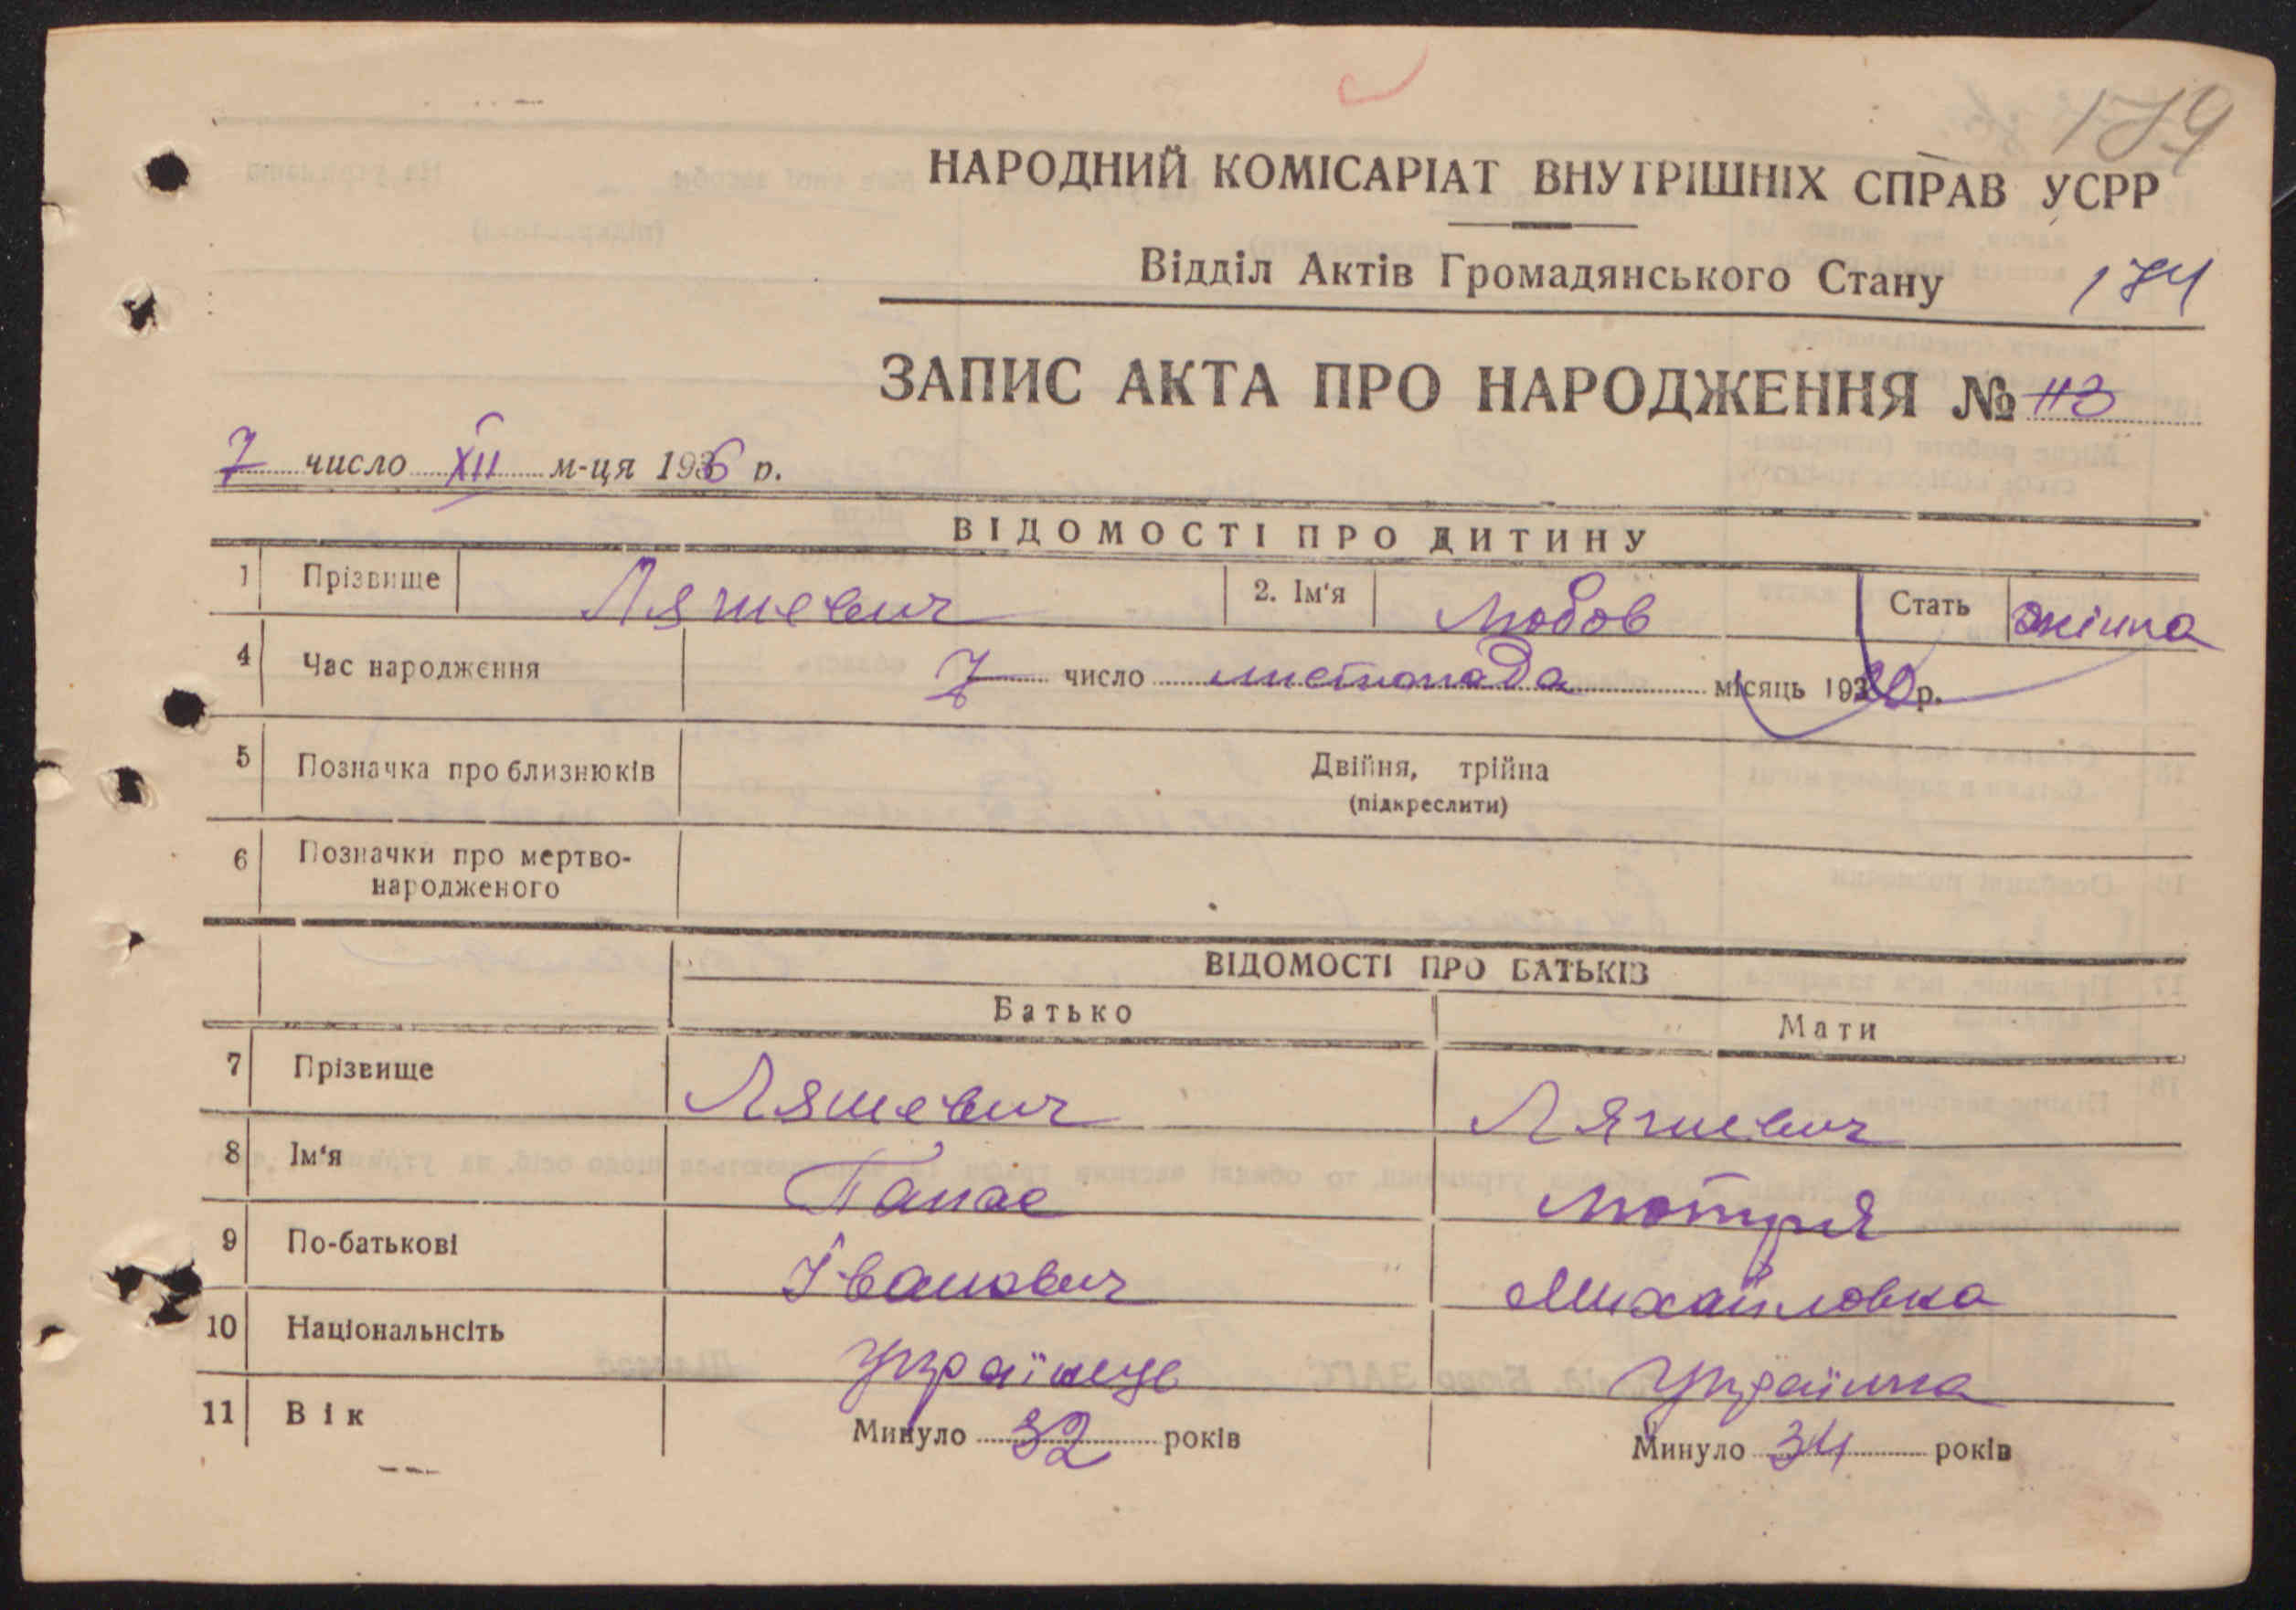 179
НАРОДНИЙ КОМІСАРІАТ ВНУТРІШНІХ СПРАВ УСРР
Відділ Актів Громадянського Стану 174
ЗАПИС АКТА ПРО НАРОДЖЕННЯ № 113
7 число XII м-ця 1936 р.
ВІДОМОСТІ ПРО ДИТИНУ
1 Прізвище Ляшевич 2. Ім'я Любов Стать жінка
4 Час народження 7 число листопада місяць 1930 р.
5 Позначка про близнюків Двійня, трійна
(підкреслити)
6 Позначки про мертво-
народженого
ВІДОМОСТІ ПРО БАТЬКІВ
Батько Мати
7 Прізвище Ляшевич Ляшевич
8 Ім'я Панас Мотря
9 По-батькові Іванович Михайловна
10 Національнсіть Українець Українка
11 Вік Минуло 32 років Минуло 34 років